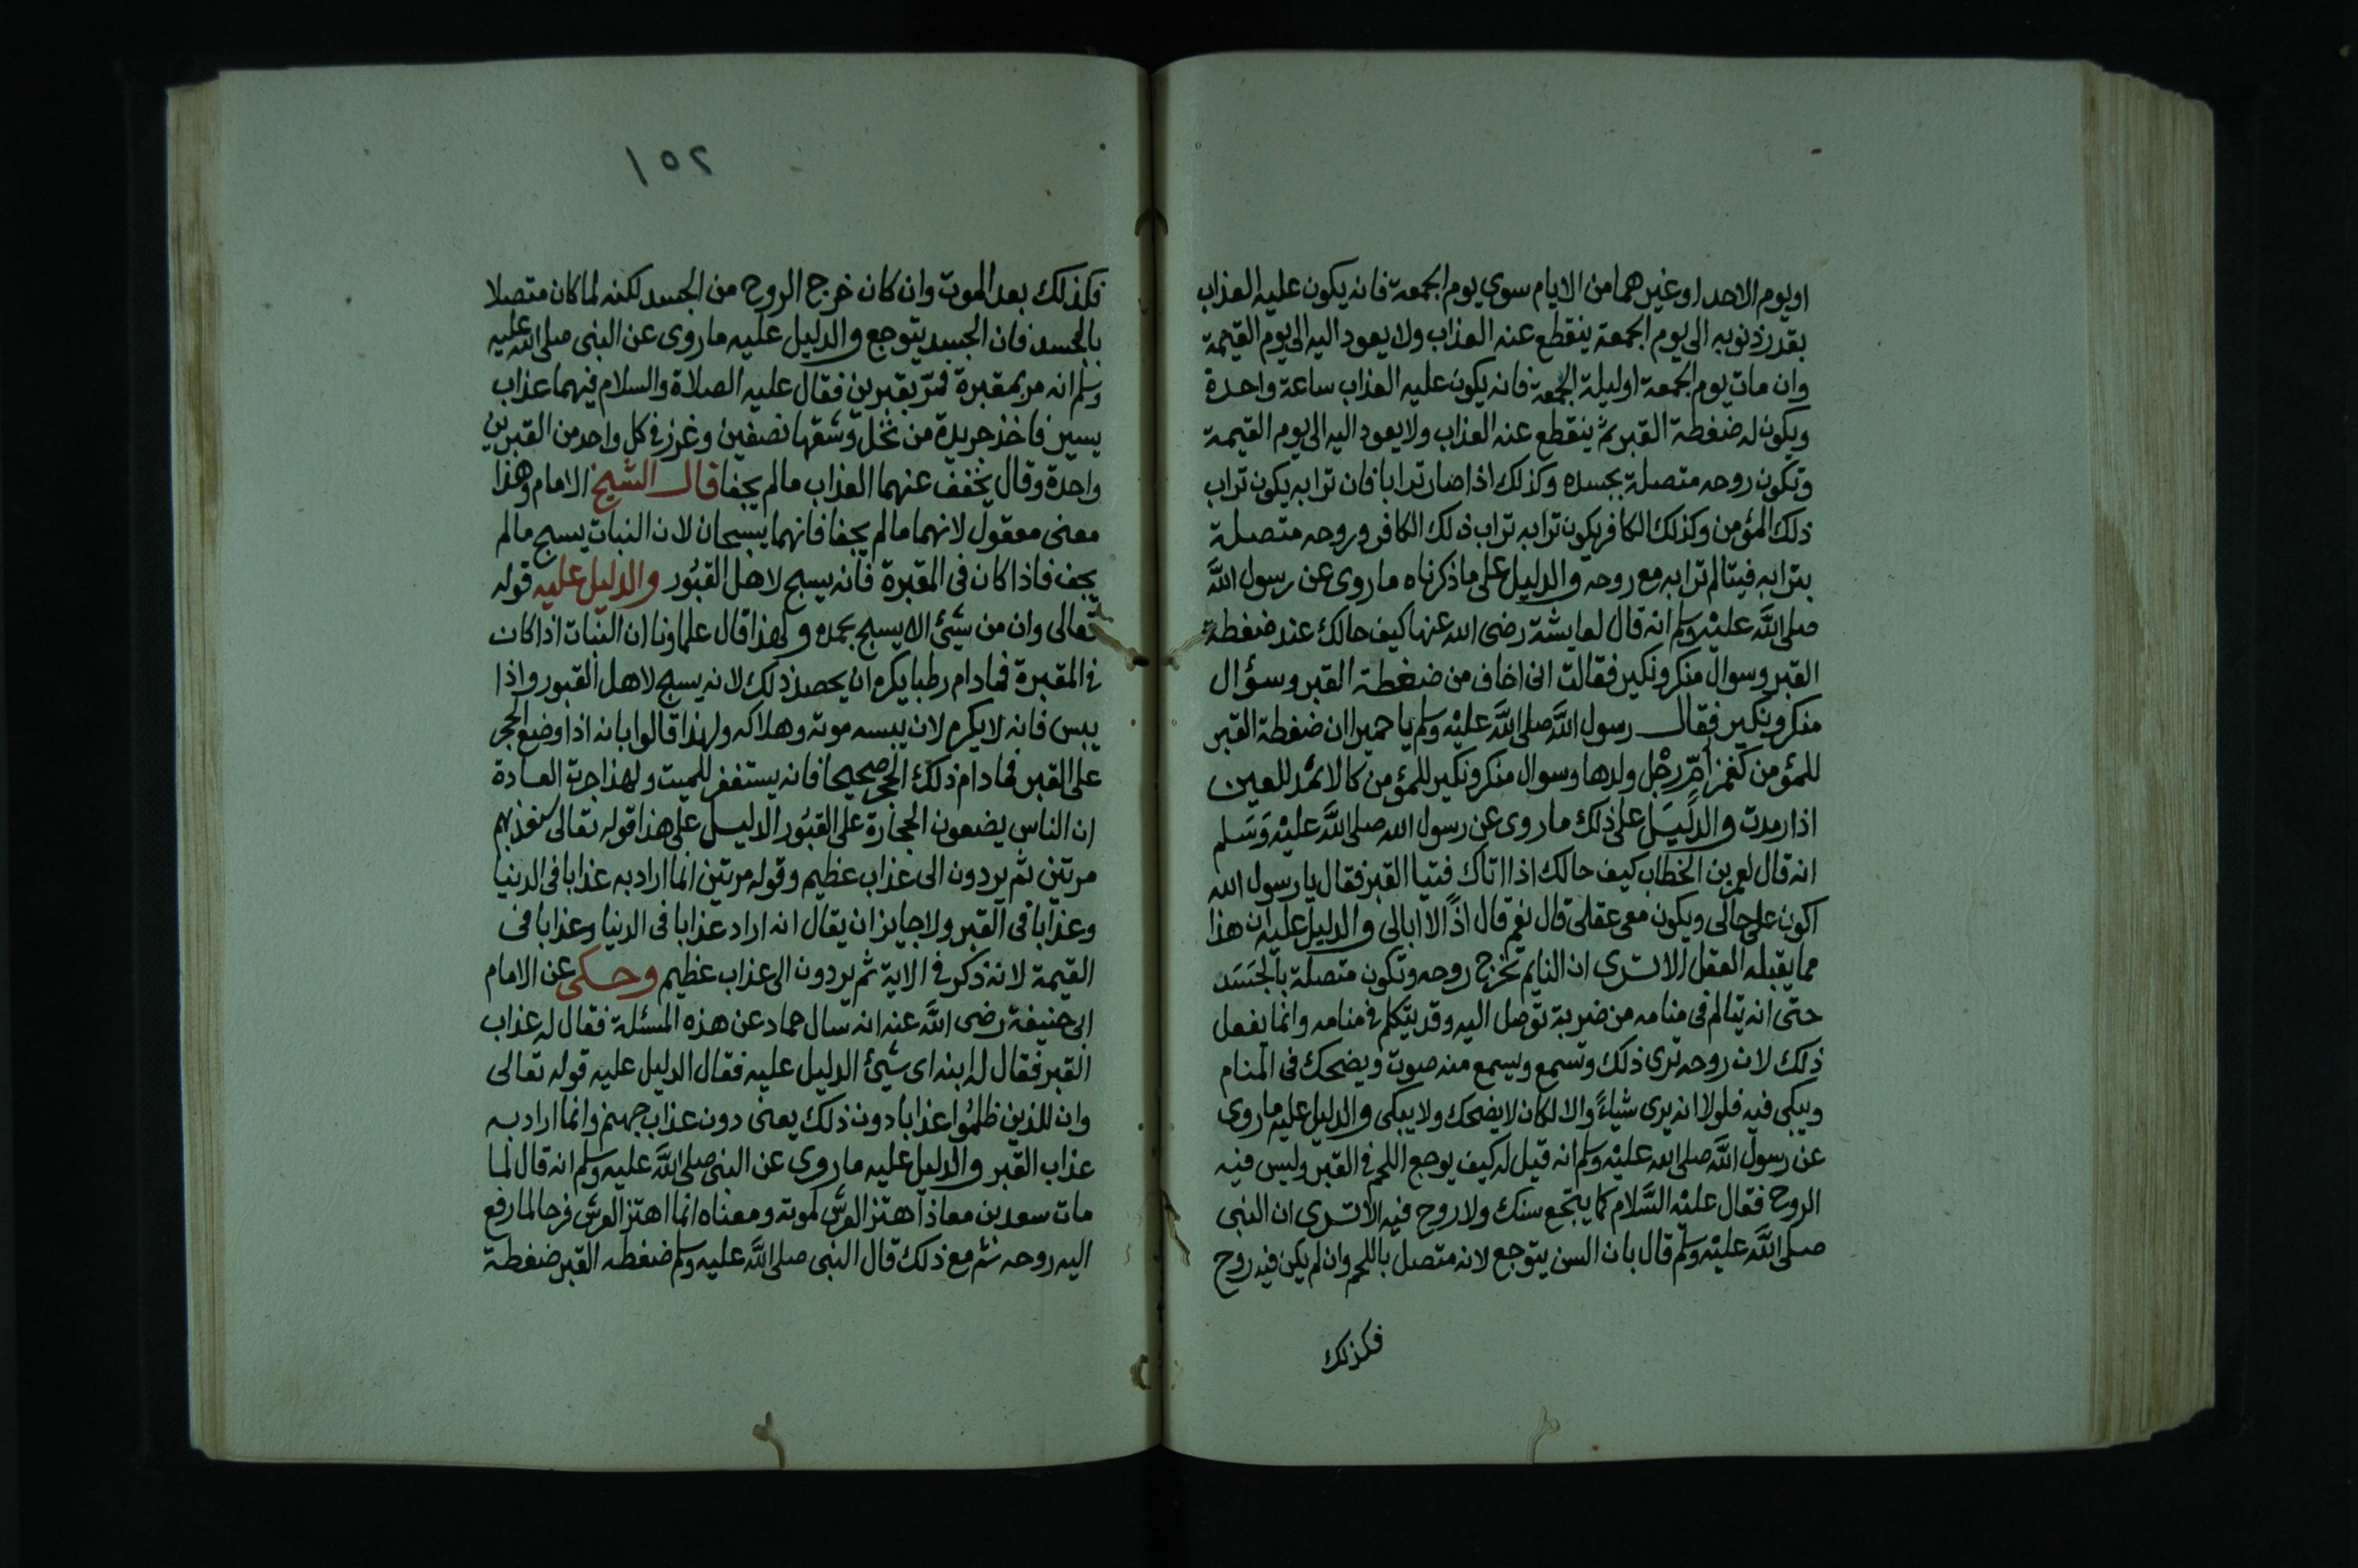 او يوم الاحد او غيرهما من الايام سوى يوم الجمعة فانه يكون عليه العذاب
بقدر ذنوبه الى يوم الجمعة ينقطع عنه العذاب ولا يعود اليه الى يوم القيمة
وان مات يوم الجمعة او ليلة الجمعة فانه يكون عليه العذاب ساعة واحدة
ويكون له ضغطة القبر ثم ينقطع عنه العذاب ولا يعود اليه الى يوم القيمة
وتكون روحه متصلة بجسده وكذلك اذا صار ترابا فان ترابه يكون تراب
ذلك المؤمن وكذلك الكافر يكون ترابه تراب ذلك الكافر وروحه متصلة
بترابه فيتالم ترابه مع روحه والدليل على ما ذكرناه ما روى عن رسول الله
صلى الله عليه وسلم انه قال لعايشة رضى الله عنها كيف حالك عند ضغطة
القبر وسوال منكر ونكير فقالت انى اخاف من ضغطة القبر وسؤال
منكر ونكير فقال رسول الله صلى الله عليه وسلم يا حميرا ان ضغطة القبر
للمؤمن كغمز امّ رجل ولدها وسوال منكر ونكير للمؤمن كالاثمد للعين
اذا رمدت والدليل على ذلك ما روى عن رسول الله صلى الله عليه وسلم
انه قال لعمر بن الخطاب كيف حالك اذا اتاك فتيا القبر فقال يا رسول الله
اكون على حالى ويكون معى عقلى قال نعم قال اذًا لا ابالى والدليل عليه ان هذا
مما يقبله العقل الا ترى ان النايم تخرج روحه وتكون متصلة بالجسد
حتى انه يتالم فى منامه من ضربة توصل اليه وقد يتكلم فى منامه وانما يفعل
ذلك لان روحه ترى ذلك وتسمع ويسمع منه صوت ويضحك فى المنام
ويبكى فيه فلولا انه يرى شياءً والا لكان لا يضحك ولا يبكى والدليل عليه ما روى
عن رسول الله صلى الله عليه وسلم انه قيل له كيف يوجع اللحم فى القبر وليس فيه
الروح فقال عليه السلام كما يتجع سنك ولا روح فيه الا ترى ان النبى
صلى الله عليه وسلم قال بان السن يتوجع لانه متصل باللحم وان لم يكن فيه روح
فكذلك
١٥٢
فكذلك بعد الموت وان كان خرج الروح من الجسد لكنه لما كان متصلا
بالجسد فان الجسد يتوجع والدليل عليه ما روى عن النبى صلى الله عليه
وسلم انه مر بمقبرة فمرّ بقبرين فقال عليه الصلاة والسلام فيهما عذاب
يسير فاخذ جريدة من نخل وشقها نصفين وغرز فى كل واحد من القبرين
واحدة وقال يخفف عنهما العذاب ما لم يجفا قال الشيخ الامام وهذا
معنى معقول لانهما ما لم يجفا فانهما يسبحان لان النبات يسبح ما لم
يجف فاذا كان فى المقبرة فانه يسبح لاهل القبور والدليل عليه قوله
تعالى وان من شئ الا يسبح بحمده ولهذا قال علماونا ان النبات اذا كان
فى المقبرة فما دام رطبا يكره ان يحصد ذلك لانه يسبح لاهل القبور واذا
يبس فانه لا يكره لان يبسه موته وهلاكه ولهذا قالوا بانه اذا وضع الحجر
على القبر فما دام ذلك الحجر صحيحا فانه يستغفر للميت ولهذا جرت العادة
ان الناس يضعون الحجارة على القبور الدليل على هذا قوله تعالى سنعذبهم
مرتين ثم يردون الى عذاب عظيم وقوله مرتين انما اراد به عذابا فى الدنيا
وعذابا فى القبر ولا جايز ان يقال انه اراد عذابا فى الدنيا وعذابا فى
القيمة لانه ذكر فى الاية ثم يردون الى عذاب عظيم وحكى عن الامام
ابى حنيفة رضى الله عنه انه سال حماد عن هذه المسئلة فقال له عذاب
القبر فقال له ابنه اى شئ الدليل عليه فقال الدليل عليه قوله تعالى
وان للذين ظلموا عذابا دون ذلك يعنى دون عذاب جهنم وانما اراد به
عذاب القبر والدليل عليه ما روى عن النبى صلى الله عليه وسلم انه قال لما
مات سعد بن معاذ اهتز العرش لموته ومعناه انما اهتز العرش فرحا لما رفع
اليه روحه ثم مع ذلك قال النبى صلى الله عليه وسلم ضغطه القبر ضغطة